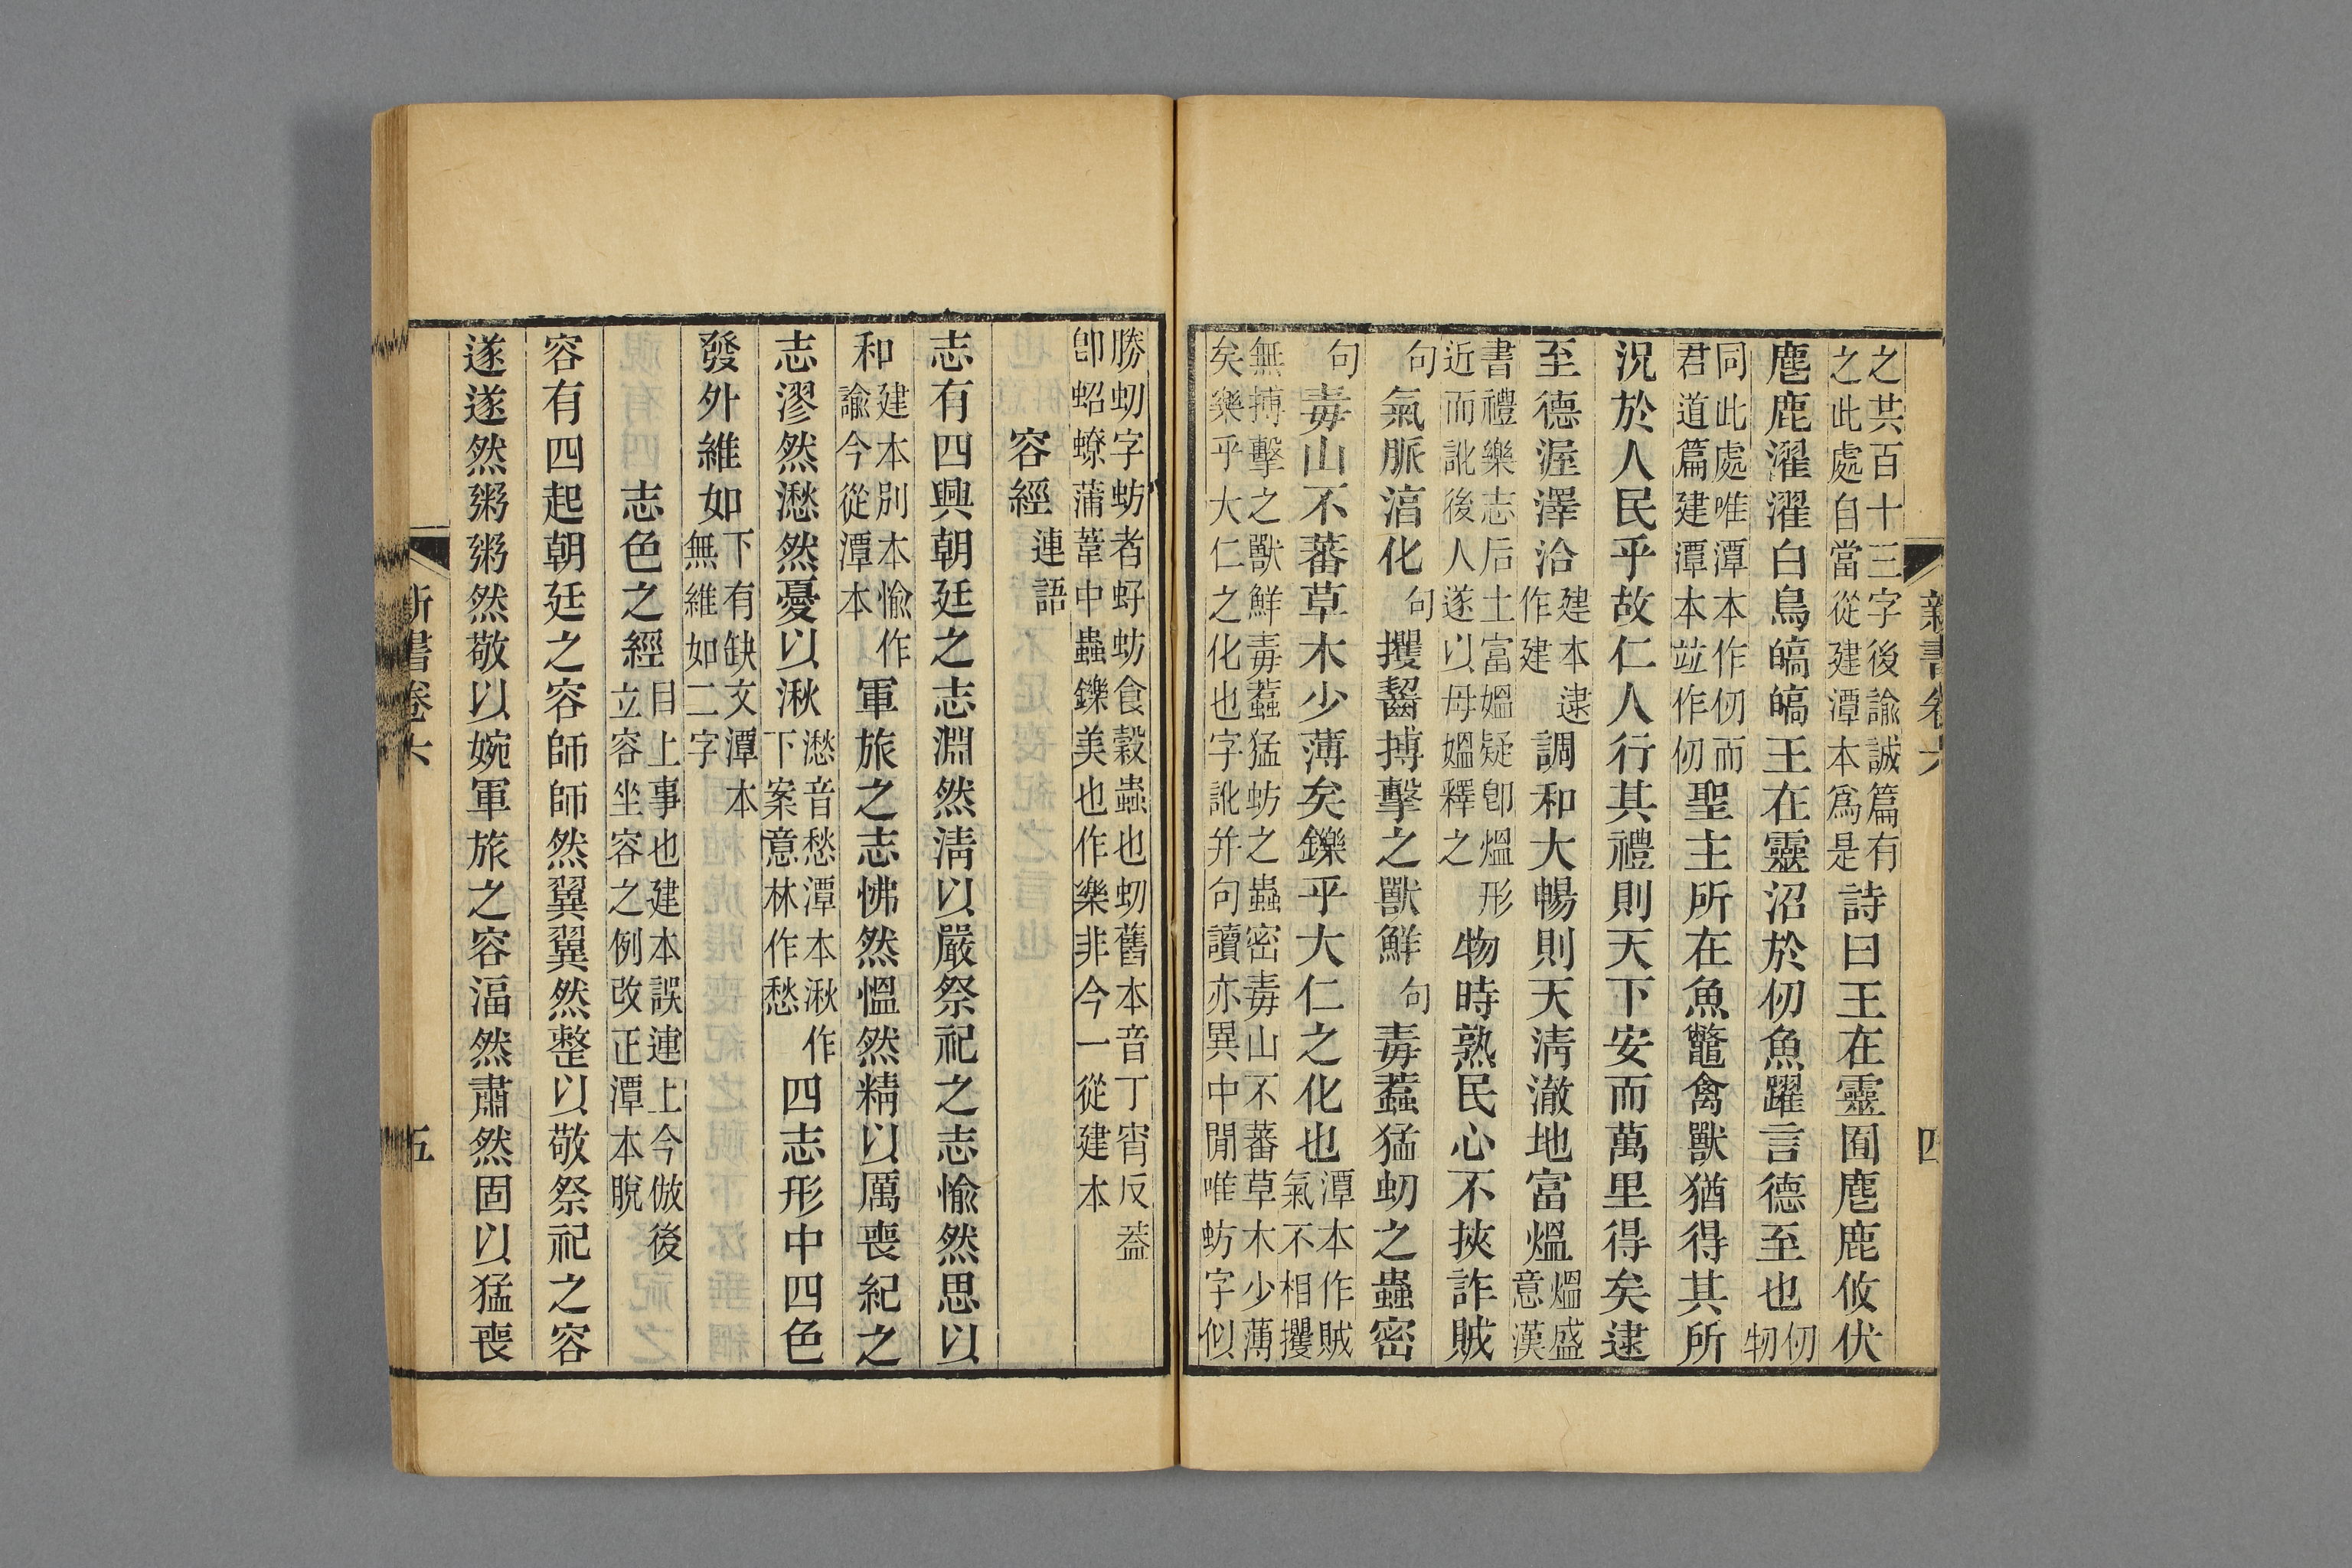 新書卷六 四
之共百十三字後諭誠篇有之此處自當從建潭本爲是詩曰王在靈囿麀鹿攸伏
麀鹿濯濯白鳥皜皜王在靈沼於仞魚躍言德至也仞物
同此處唯潭本作仞而君道篇建潭本竝作仞聖主所在魚鼈禽獸猶得其所
況於人民乎故仁人行其禮則天下安而萬里得矣逮
至德渥澤洽建本逮作建調和大暢則天淸澈地富熅熅盛意漢
書禮樂志后土富媼疑卽熅形近而訛後人遂以母媼釋之物時熟民心不挾詐賊
句氣脈湻化句攫齧搏擊之獸鮮句毒蠚猛蚏之蟲密
句毒山不蕃草木少薄矣鑠乎大仁之化也潭本作賊氣不相攫
無搏擊之獸鮮毒蠚猛蚄之蟲密毒山不蕃草木少薄矣樂乎大仁之化也字訛幷句讀亦異中閒唯蚄字似
勝蚏字蚄者虸蚄食穀蟲也蚏舊本音丁宵反葢卽蛁蟟蒲葦中蟲鑠美也作樂非今一從建本
容經連語
志有四興朝廷之志淵然淸以嚴祭祀之志愉然思以
和建本別本愉作諭今從潭本軍旅之志怫然慍然精以厲喪紀之
志漻然㵞然憂以湫㵞音愁潭本湫作下案意林作愁四志形中四色
發外維如下有缺文潭本無維如二字
志色之經目上事也建本誤連上今倣後立容坐容之例改正潭本脫
容有四起朝廷之容師師然翼翼然整以敬祭祀之容
遂遂然粥粥然敬以婉軍旅之容湢然肅然固以猛喪
新書卷六 五